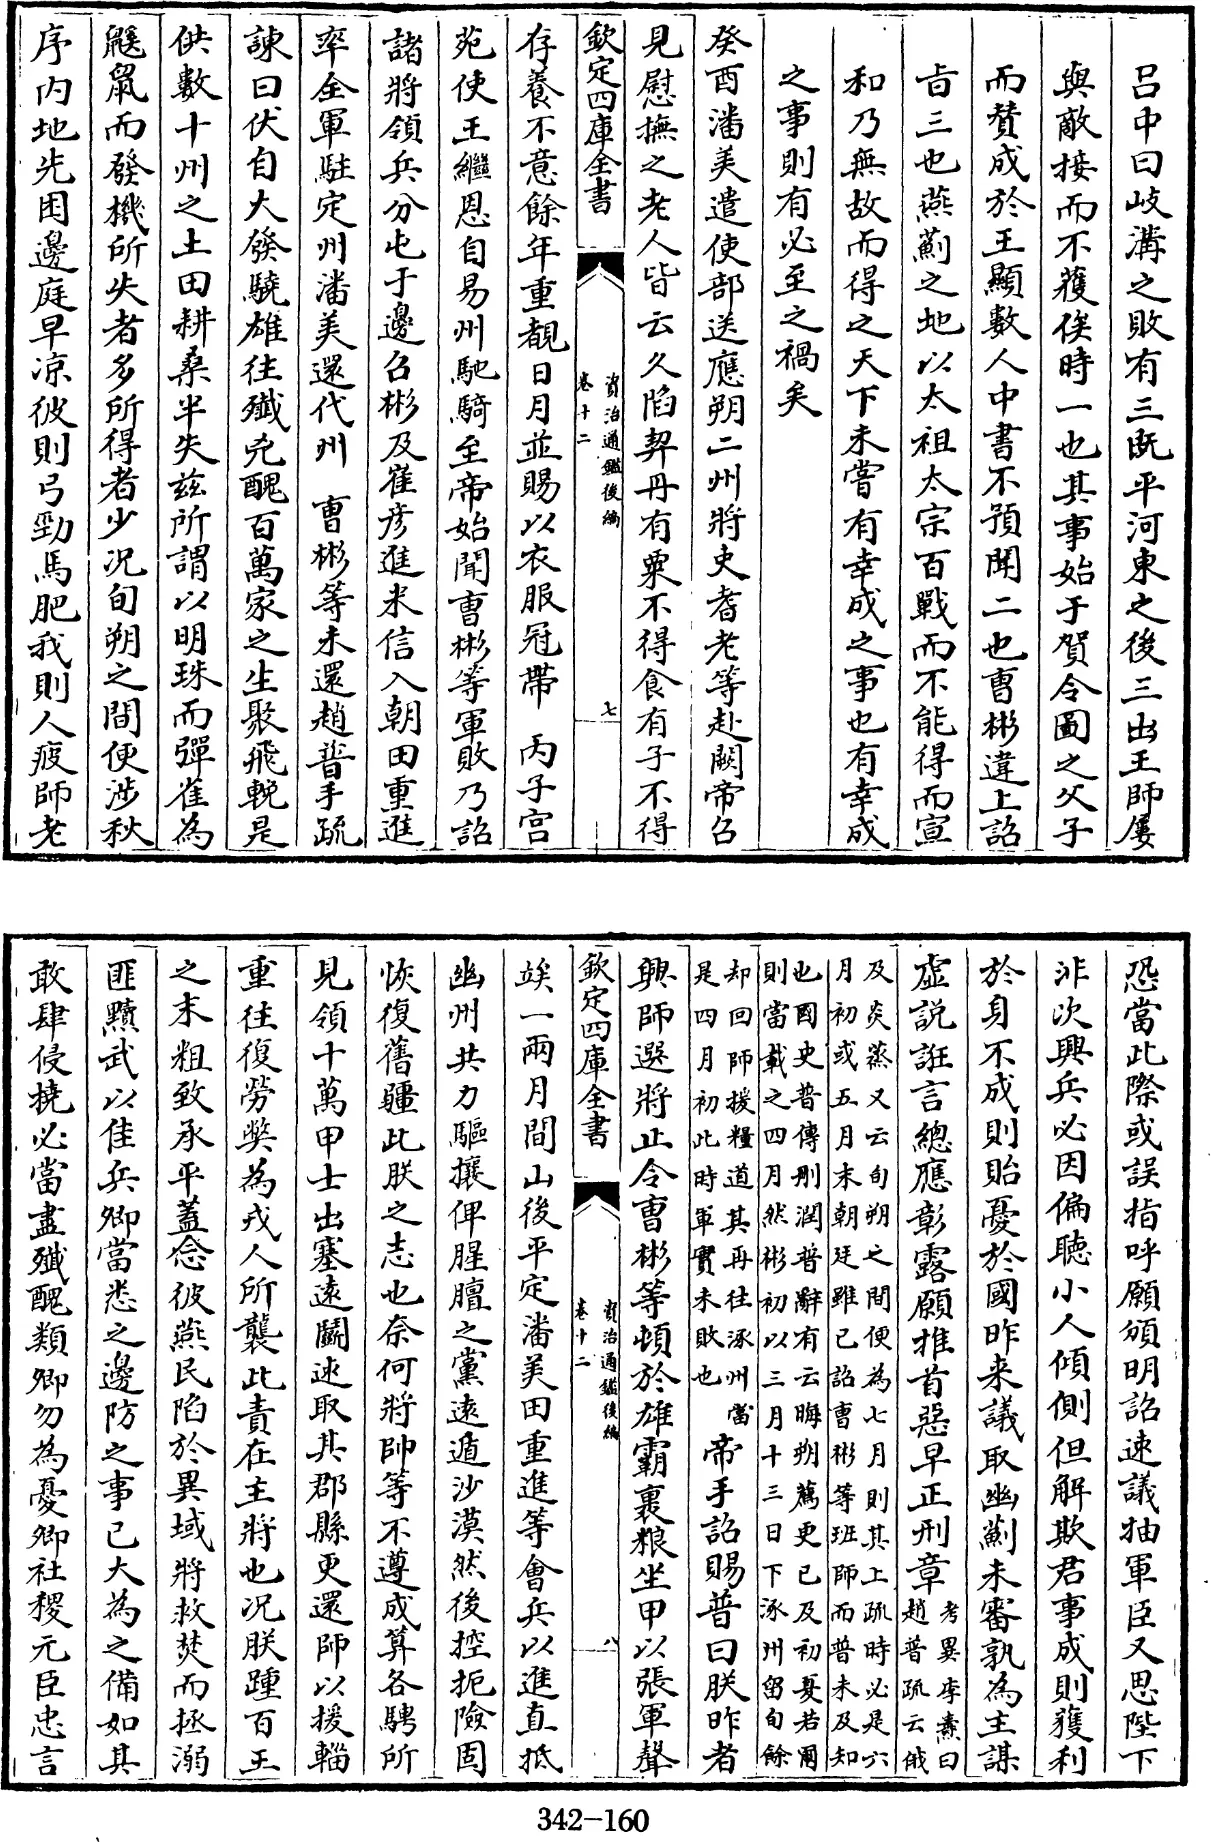 呂中曰岐溝之敗有三旣平河東之後三出王師屢
與敵接而不獲俟時一也其事始于賀令圖之父子
而贊成於王顯數人中書不預聞二也曹彬違上詔
㫖三也燕薊之地以太祖太宗百戰而不能得而宣
和乃無故而得之天下未嘗有幸成之事也有幸成
之事則有必至之禍矣
癸酉潘美遣使部送應朔二州將吏耆老等赴闕帝召
見慰撫之老人皆云久陷契丹有粟不得食有子不得
欽定四庫全書
資治通鑑後編
卷十二
七
存養不意餘年重覩日月並賜以衣服冠帶　丙子宫
苑使王繼恩自易州馳騎至帝始聞曹彬等軍敗乃詔
諸將領兵分屯于邊召彬及崔彦進米信入朝田重進
率全軍駐定州潘美還代州　曹彬等未還趙普手疏
諫曰伏自大發驍雄往殱兇醜百萬家之生聚飛輓是
供數十州之土田耕桑半失兹所謂以明珠而彈雀為
鼷鼠而發機所失者多所得者少况旬朔之間便涉秋
序内地先困邊庭早凉彼則弓勁馬肥我則人疲師老
恐當此際或誤指呼願頒明詔速議抽軍臣又思陛下
非次興兵必因偏聽小人傾側但解欺君事成則獲利
於身不成則貽憂於國昨来議取幽薊未審孰為主謀
虚説誑言總應彰露願推首惡早正刑章
考異李燾曰
趙普疏云俄
及炎蒸又云旬朔之間便為七月則其上疏時必是六
月初或五月末朝廷雖已詔曹彬等班師而普未及知
也國史普傳刪潤普辭有云晦朔薦更已及初夏若爾
則當載之四月然彬初以三月十三日下涿州留旬餘
却回師援糧道其再往涿州當
是四月初此時軍實未敗也
帝手詔賜普曰朕昨者
興師選將止令曹彬等頓於雄霸裹粮坐甲以張軍聲
欽定四庫全書
資治通鑑後編
卷十二
八
竢一兩月間山後平定潘美田重進等會兵以進直抵
幽州共力驅攘俾腥膻之黨遠遁沙漠然後控扼險固
恢復舊疆此朕之志也奈何將帥等不遵成算各騁所
見領十萬甲士出塞遠鬭速取其郡縣更還師以援輜
重往復勞弊為戎人所襲此責在主將也况朕踵百王
之末粗致承平蓋念彼燕民陷於異域將救焚而拯溺
匪黷武以佳兵卿當悉之邊防之事已大為之備如其
敢肆侵撓必當盡殱醜類卿勿為憂卿社稷元臣忠言
342-160